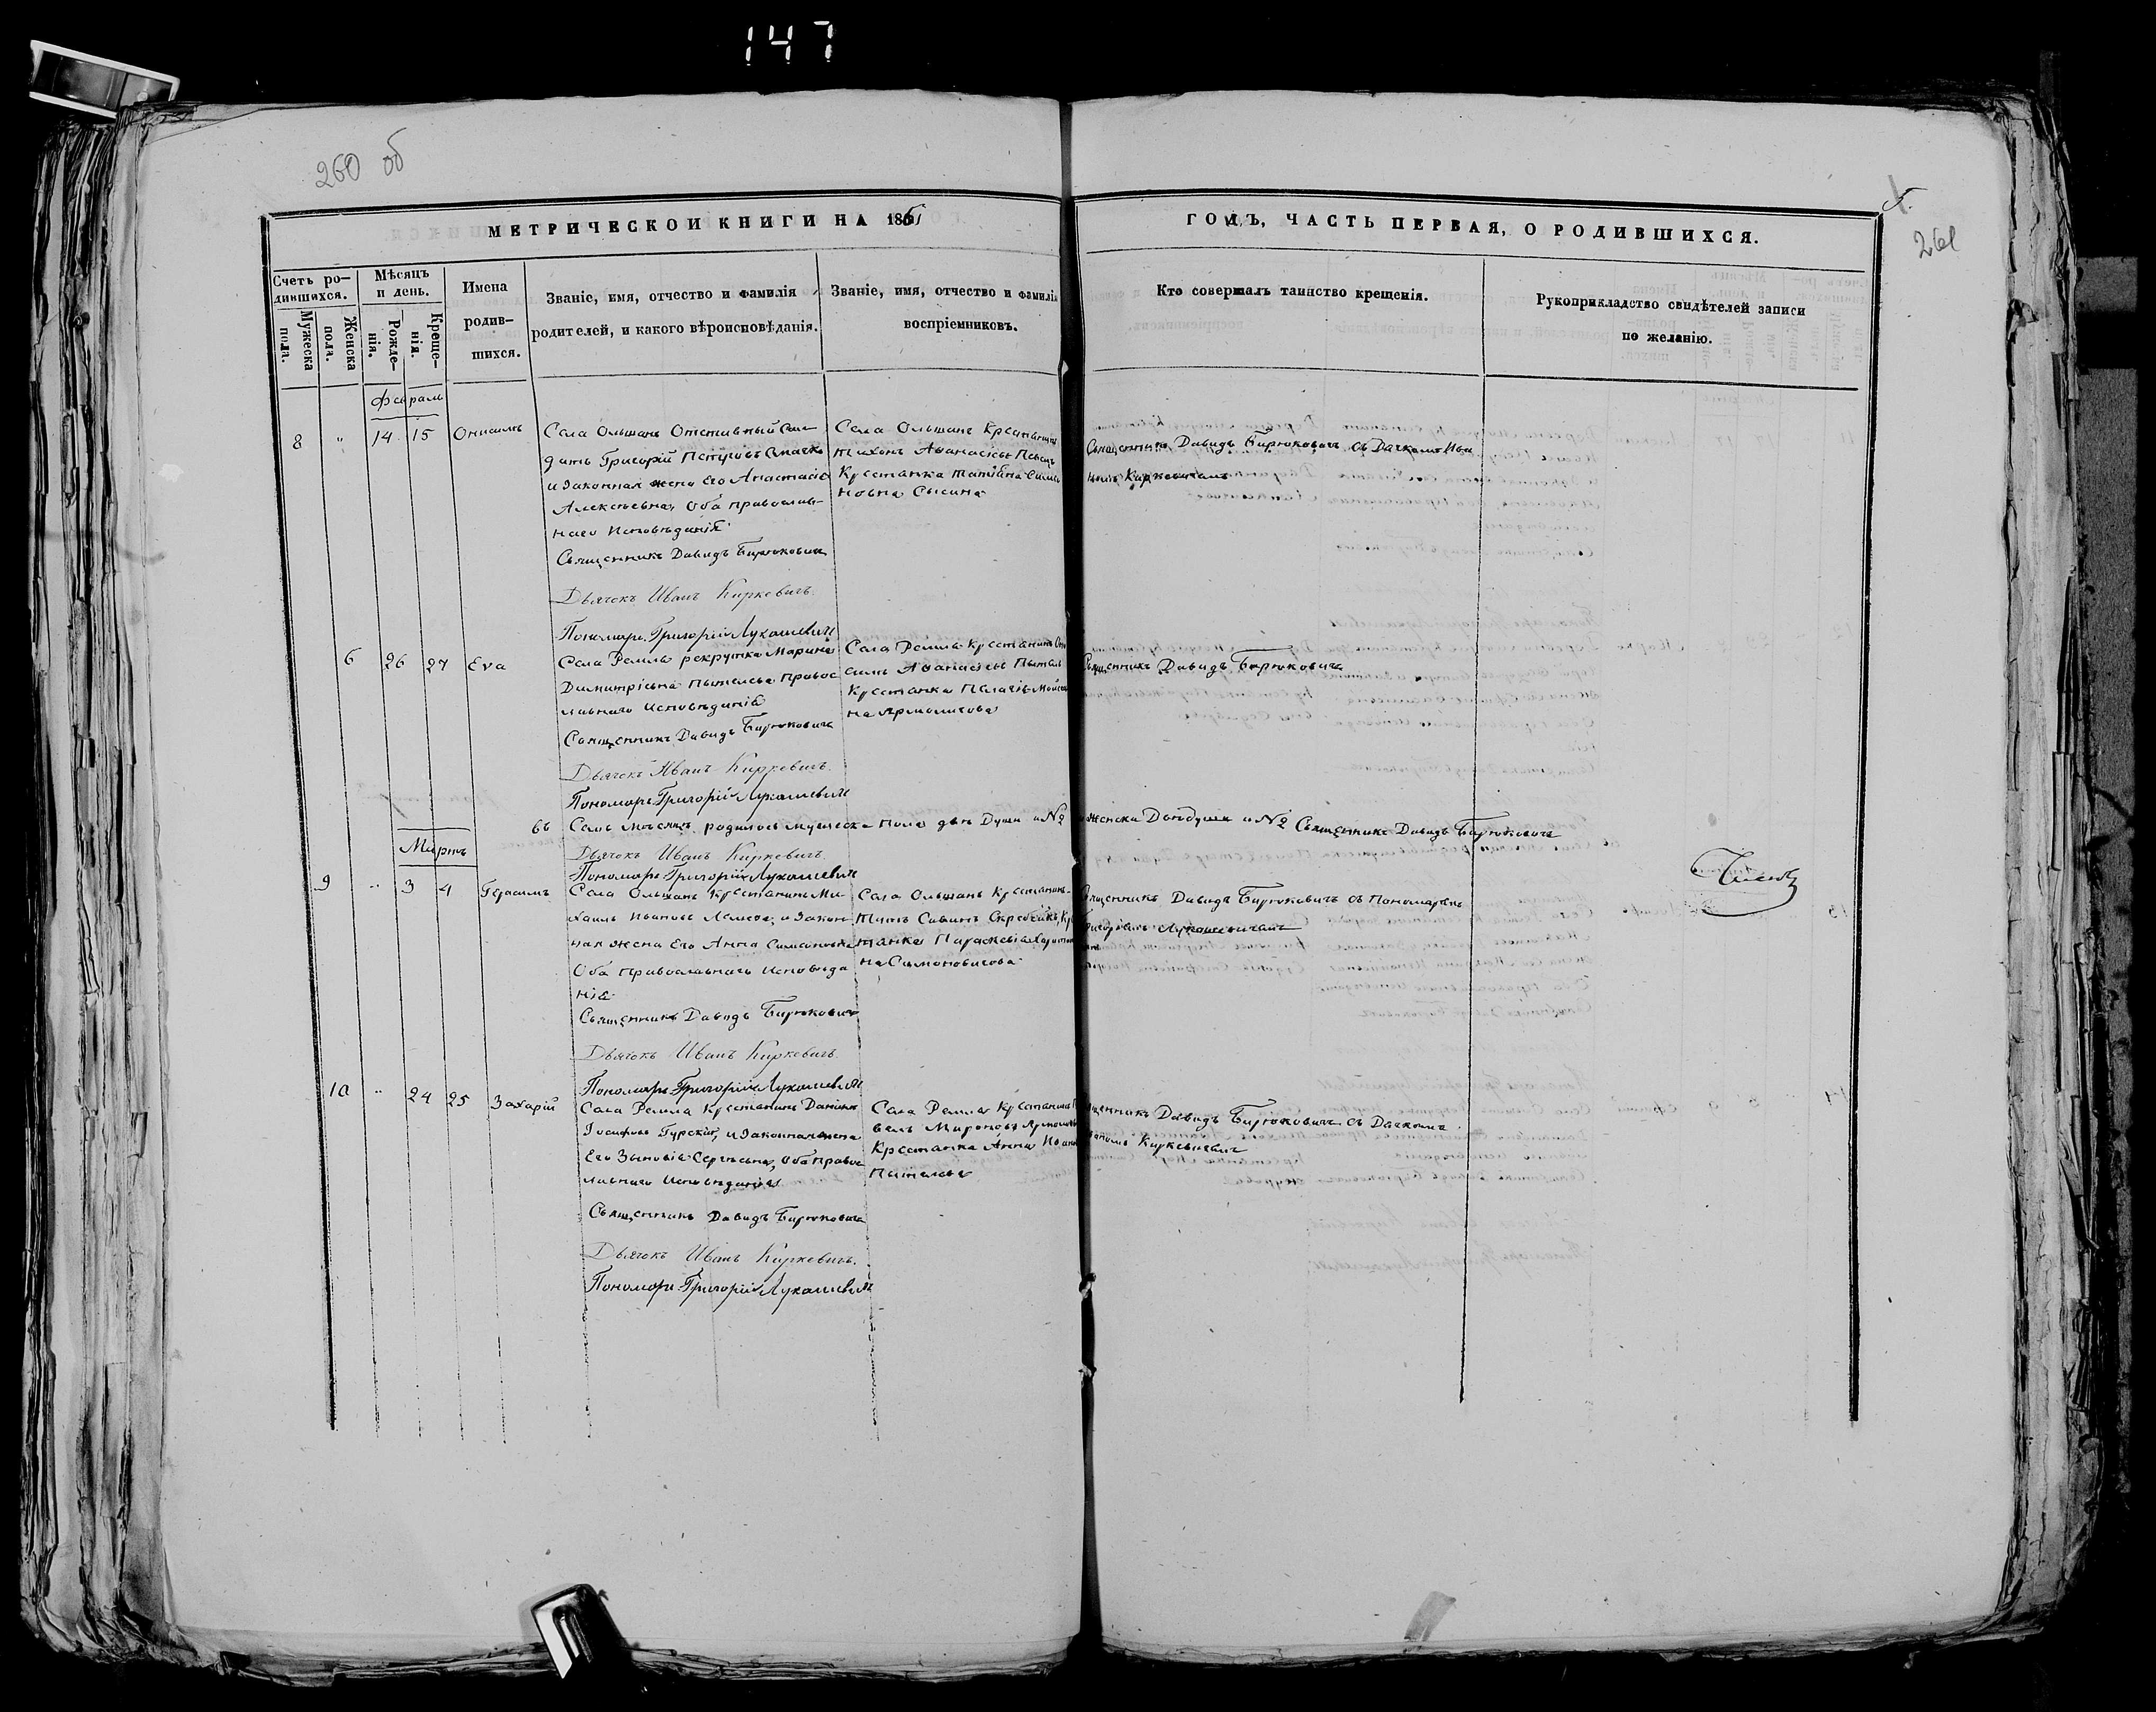 147
260 об
5.
261
МЕТРИЧЕСКОИ КНИГИ НА 1861
ГОДЪ, ЧАСТЬ ПЕРВАЯ, О РОДИВШИХСЯ.
Счетъ ро-
дившихся.
Мужеска
пола.
Женска
пола.
Мѣсяцъ
и день.
Рожде-
нія.
Креще-
нія.
Имена
родив-
шихся.
Званіе, имя, отчество и фамилія
родителей, и какого вѣроисповѣданія.
Званіе, имя, отчество и фамилія
воспріемниковъ.
Кто совершалъ таинство крещенія.
Рукоприкладство свидѣтелей записи
по желанію.
Февраль
8 " 14 15 Онисимъ
Села Ольшанъ Отставный Сол-
датъ Григорій Петровъ
и Законная жена Его Анастасія
Алексѣевна, Оба православ-
наго Исповѣданія
Священникъ Давидъ Бирюковичъ
Дьячокъ Иванъ Киркевичъ.
Пономарь Григорій Лукашевичъ
Села Ольшанъ Крестьянинъ
Тихонъ Аѳанасіевъ
Крестянка Татіана Симо
новна Сысина
Священникъ Давидъ Бирюковичъ съ Дячкомъ Ива
номъ Киркевичемъ
6 26 27 Ева
Села Ремля рекрутка Марина
Димитріевна Пытлева Правос
лавнаго Исповѣданія
Священникъ Давидъ Бирюковичъ
Дьячокъ Иванъ Киркевичъ.
Пономарь Григорій Лукашевичъ
Села Ремля Крестянинъ
Аѳанасіевъ
Крестянка Пелагія Мойсе
на Ярмоличова
Священникъ Давидъ Бирюковичъ
въ Семъ мѣсяцѣ родилось мужеска пола двѣ Души и №2 женска Двѣ души и №2 Священникъ Давидъ Бирюковичъ
Дьячокъ Иванъ Киркевичъ.
Пономарь Григорій Лукашевичъ
Мартъ
9 " 3 4 Герасимъ
Села Ольшанъ Крестянинъ Ми-
хаилъ Ивановъ и Закон
ная жена Его Анна Симоновна
Оба Православнаго Исповѣда
нія
Священникъ Давидъ Бирюковичъ
Дьячокъ Иванъ Киркевичъ.
Пономарь Григорій Лукашевичъ
Села Ольшанъ Крестянинъ
Титъ Савинъ
Параскевія
на Симоновичова
Священникъ Давидъ Бирюковичъ съ Пономаремъ
Григоріемъ Лукашевичемъ
10 " 24 25 Захарій
Села Ремля Крестянинъ Даніилъ
Іосифовъ Гурскій, и Законная жена
Его Зыновія Сергѣевна, Оба правос
лавнаго Исповѣданія
Священникъ Давидъ Бирюковичъ
Дьячокъ Иванъ Киркевичъ.
Пономарь Григорій Лукашевичъ
Села Ремля Крестянинъ
Мироновъ
Крестянка Анна
Пытлева
Священникъ Давидъ Бирюковичъ съ Дячкомъ
Иваномъ Киркевичемъ